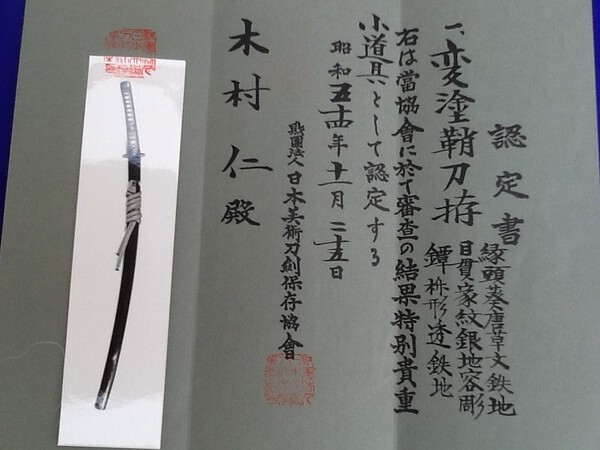 認定書
一、変塗鞘刀拵
縁頭葵唐草文鉄地
目貫家紋銀地容彫
鐔桝形透鉄地
右は當協會に於て審査の結果特別貴重
小道具として認定する
昭和五十四年十一月二十五日
財團法人日本美術刀劍保存協會
木村仁殿